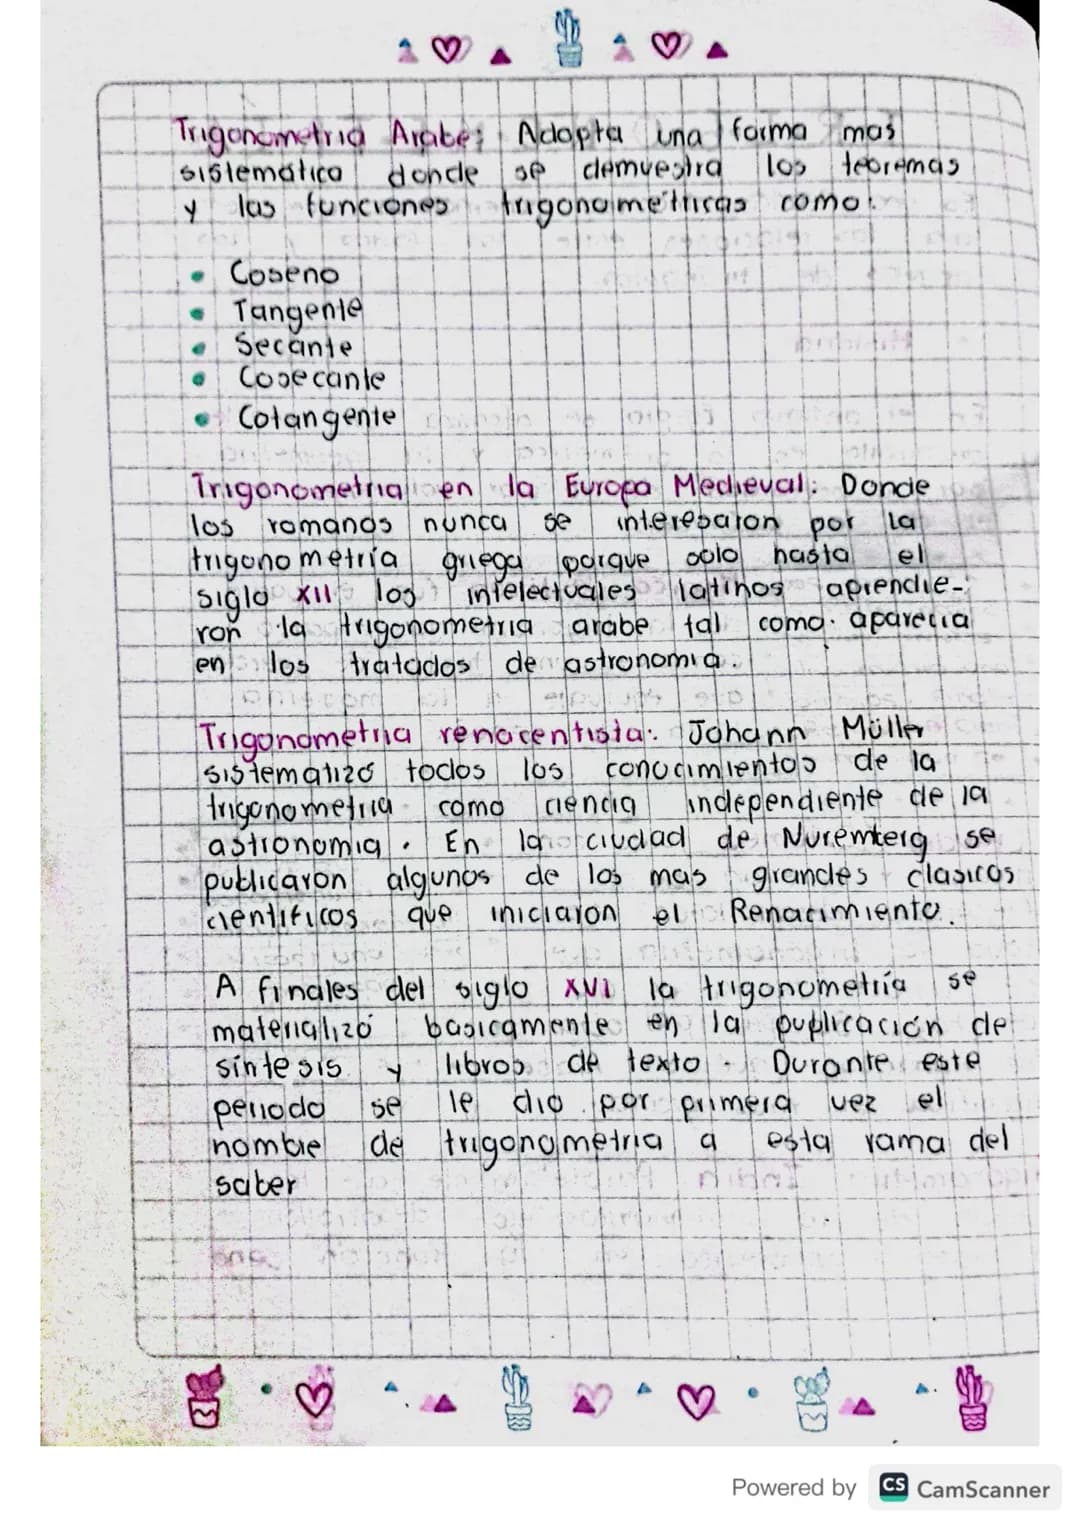 Trigonometria Arabe: Adopta una forma mas
sistemático donde se demuestra los teoremas
y las funciones trigonométricas como:
• Coseno
• Tangente
• Secante
• Cosecante
• Cotangente
Trigonometria en la Europa Medieval: Donde
los romanos nunca se interesaron por la
trigonometría griega porque solo hasta el
siglo XII los intelectuales latinos aprendie-
ron la trigonometria arabe tal como aparecia
en los tratados de astronomia.
Trigonometria renacentista: Johann Müller
sistematizó todos los conocimientos de la
trigonometria como ciencia independiente de la
astronomia. En la ciudad de Nuremberg se
publicaron algunos de los mas grandes clasicos
cientificos que iniciaron el Renacimiento.
A finales del siglo XVI la trigonometría se
materializó basicamente en la publicación de
síntesis y libros de texto. Durante este
periodo se le dio por primera vez el
nombre de trigonometria a esta rama del
saber
Powered by CS CamScanner